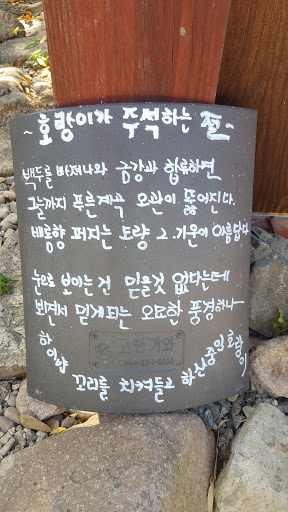 ~ 호랑이가 주석하는 절 ~
백두를 빠져나와 금강과 합류하면
그늘까지 푸른계곡 오관이 뚫어진다.
배롱향 퍼지는 도량 그 기운이 아름답다.
눈으로 보이는 건 믿을것 없다는데
보면서 믿게되는 오묘한 풍경하나
고령기와
하얀 꼬리를 치켜들고 하산중인 호랑이